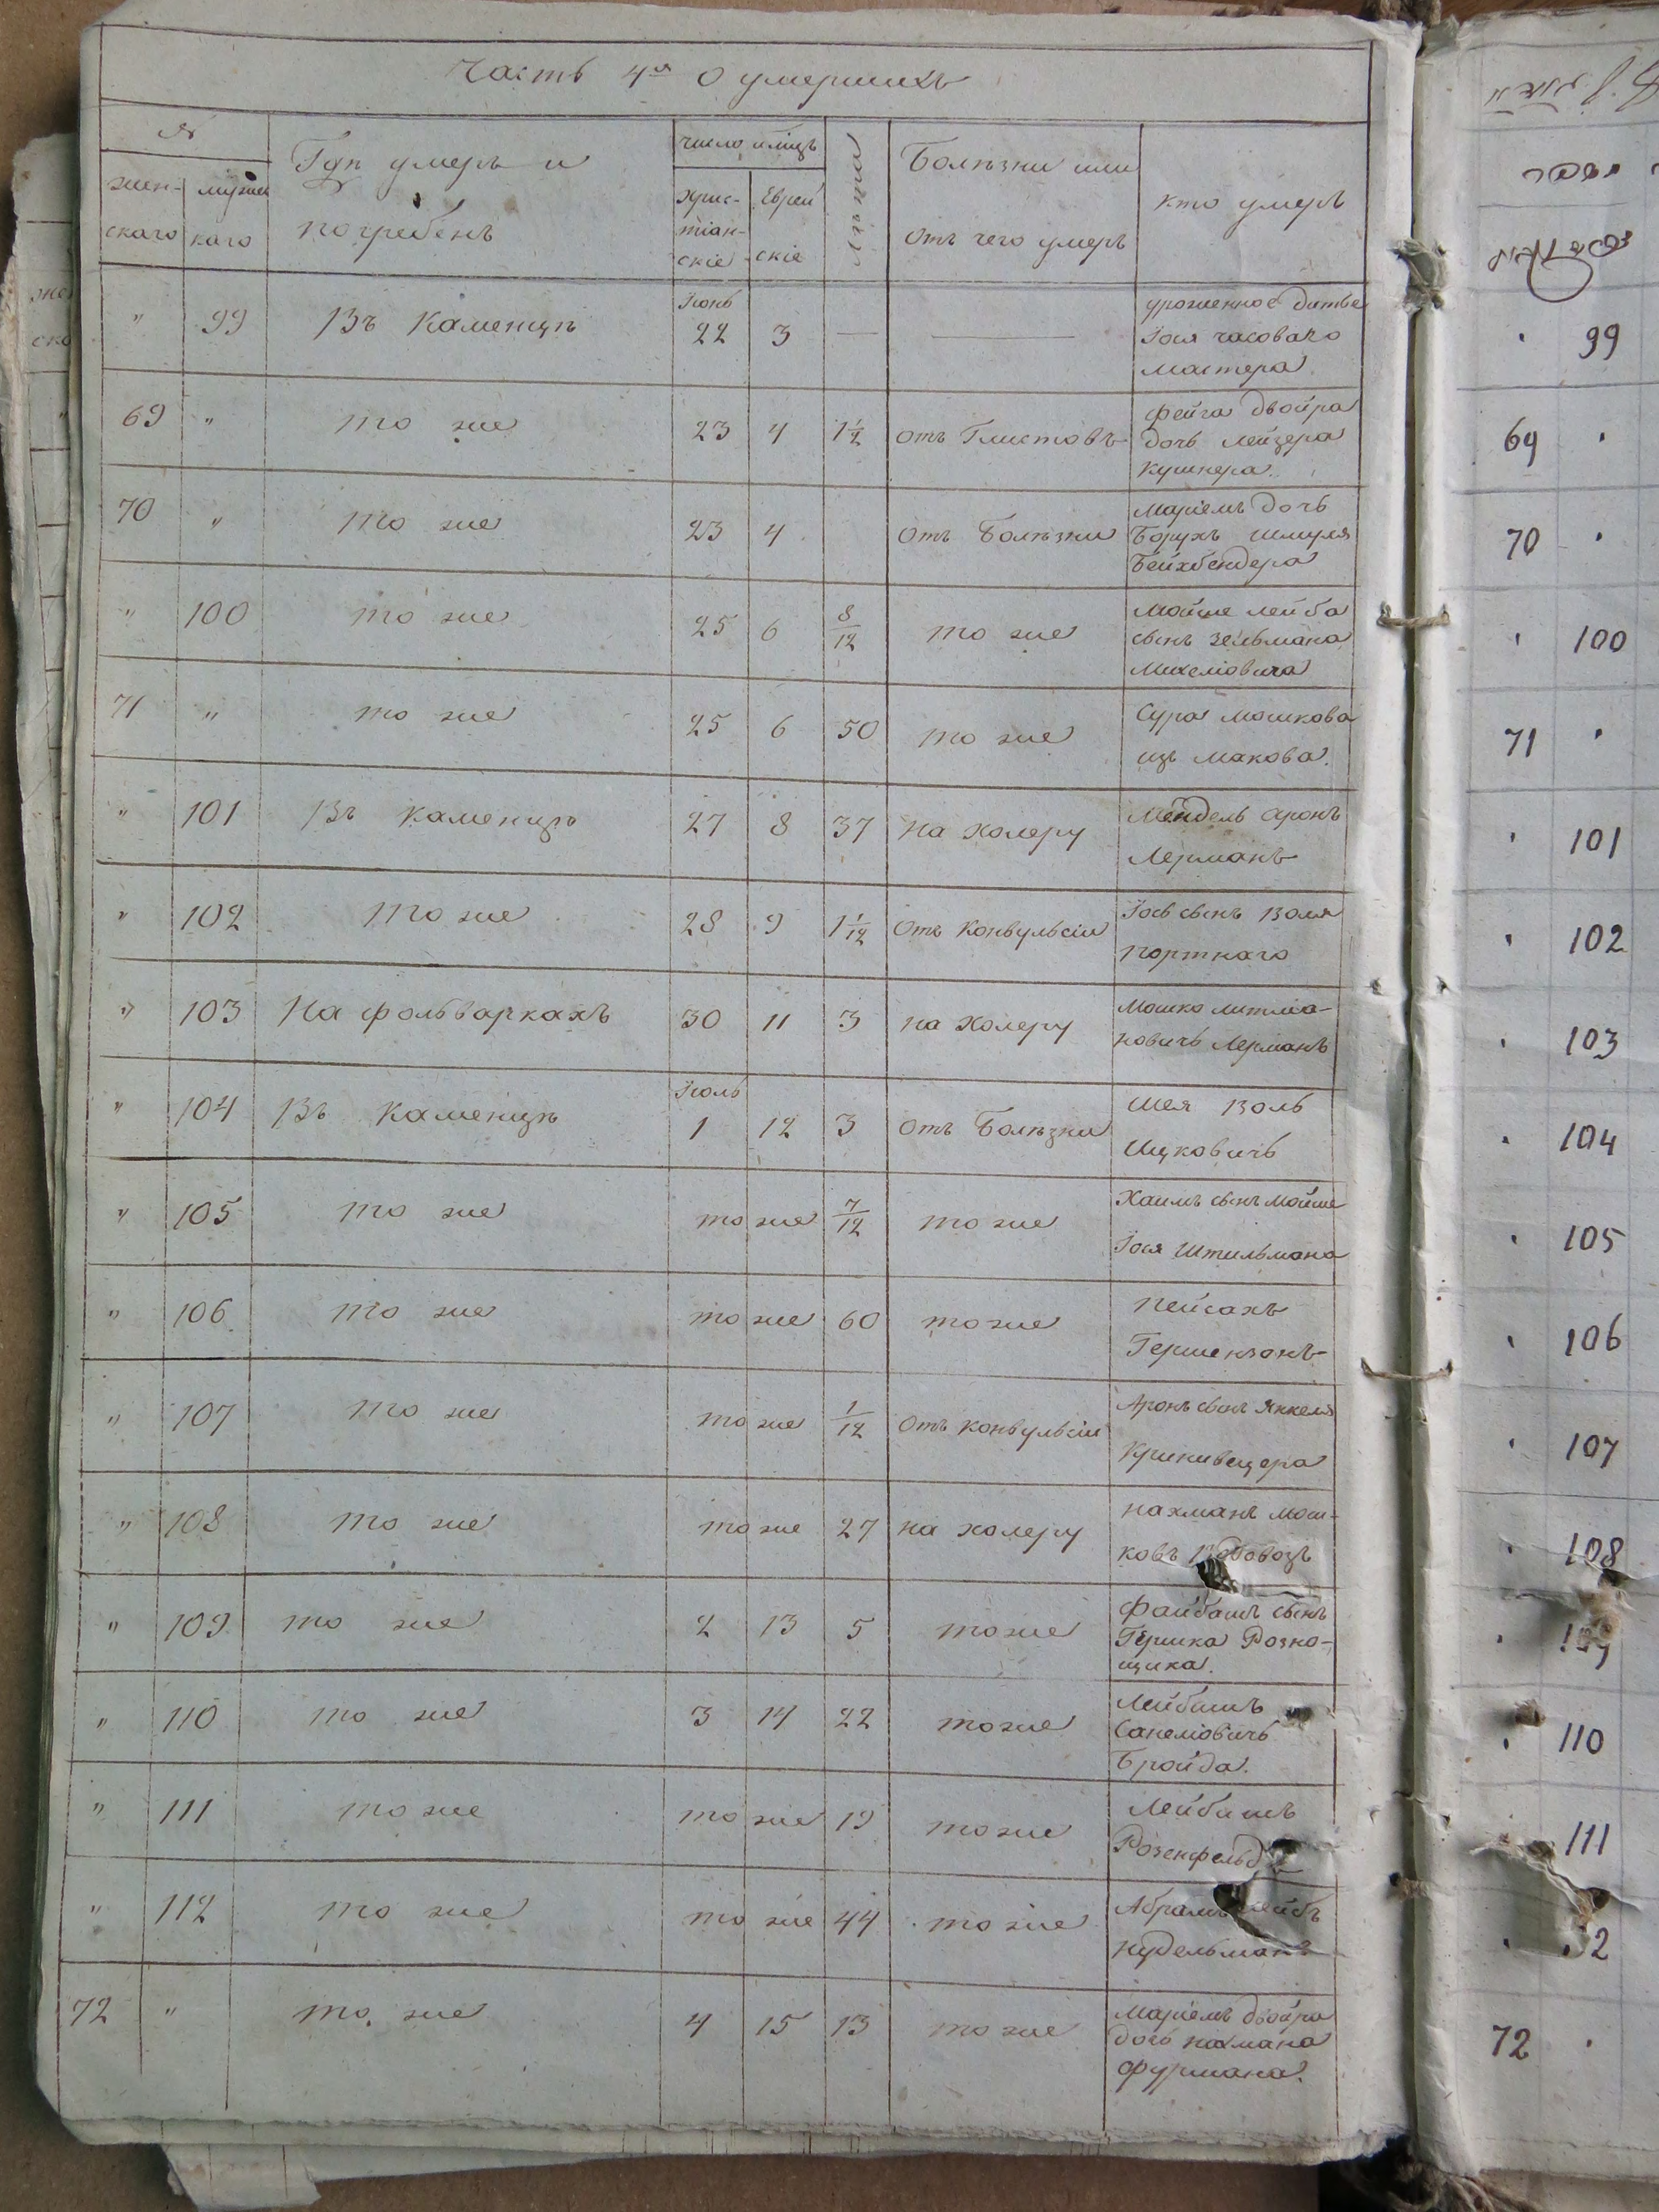 Часть 4я О умершихъ
№
женскаго
мужескаго
Гдѣ умеръ и
погребенъ
число и мцъ
Хрис-
тіан-
скіе
Еврей
скіе
Лѣта
Болѣзни или
отъ чего умеръ
кто умеръ
" 99 Въ Каменцѣ Іюнь 22 3 — — урожденное дитье
Іося часоваго
мастера.
69 " то же 23 4 1½ отъ Глистовъ Фейга Двойра
дочь Лейзера
Кушнера.
70 " то же 23 4 отъ Болѣзни Маріемъ дочь
Борухъ Шмуля
" 100 то же 25 6 8/12 то же Мойше Лейба
сынъ Зельмана
Михеліовича
71 " то же 25 6 50 то же Сура Мошкова
изъ Макова.
" 101 Въ Каменцѣ 27 8 37 на холеру Мендель Аронъ
Лерманъ
" 102 то же 28 9 1 1/12 отъ Конвульсіи Іось сынъ Воля
портнаго
" 103 На фольваркахъ 30 11 3 на холеру Мошко
новичъ Лерманъ
" 104 Въ Каменцѣ Іюль 1 12 3 отъ Болѣзни Шея Воль
Ицковичъ
" 105 то же то же 7/12 то же Хаимъ сынъ Мойше
Іося Штильмана
" 106 то же то же 60 то же Пейсахъ
Гершензонъ
" 107 то же то же 1/12 отъ конвульсіи Аронъ сынъ Янкеля
Крикивецера
" 108 то же то же 27 на холеру Нахманъ Мош-
ковъ Водовозъ
" 109 то же 2 13 5 то же Файбишъ сынъ
Гершка Розно-
щика.
" 110 то же 3 14 22 то же Лейбишъ
Санеліовичъ
Бройда.
" 111 то же то же 19 то же Лейбишъ
Розенфельдъ
" 112 то же то же 44 то же Абрамъ Лейбъ
Нудельманъ
72 " то же 4 15 13 то же Маріемъ Двойра
дочь Нахмана
Фурмана.
99
69
70
100
71
101
102
103
104
105
106
107
108
109
110
111
72